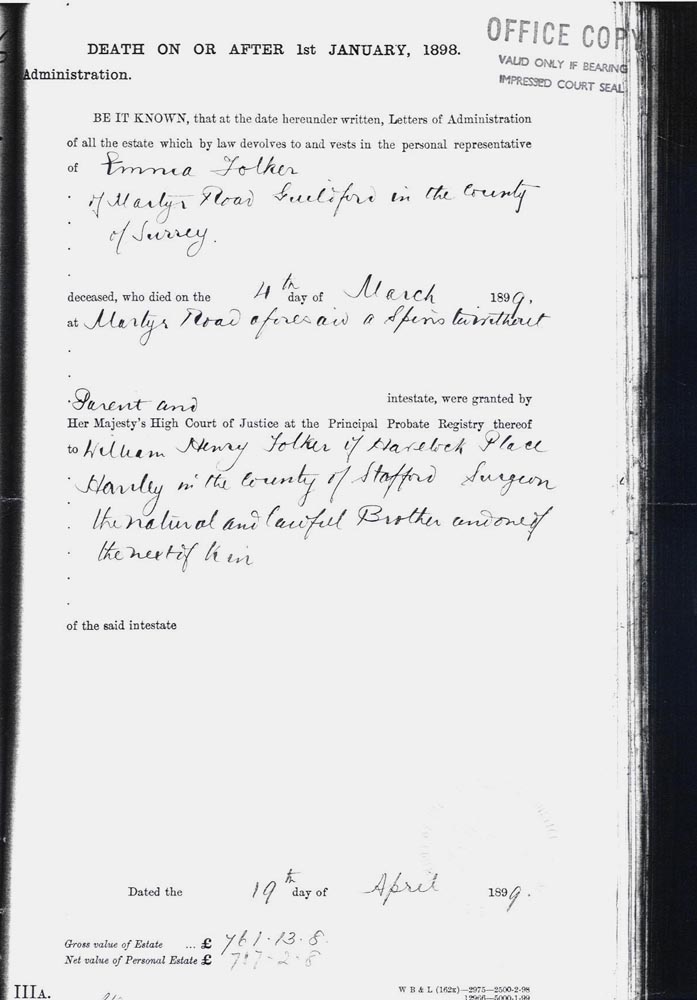 OFFICE COPY
VALID ONLY IF BEARING
IMPRESSED COURT SEAL
DEATH ON OR AFTER 1st JANUARY, 1898.
Administration.
BE IT KNOWN, that at the date hereunder written, Letters of Administration
of all the estate which by law devolves to and vests in the personal representative
of Emma Folker
of Martyr Road Guildford in the County
of Surrey.
deceased, who died on the 4th day of March 1899.
at Martyr Road aforesaid a Spinster without
Parent and intestate, were granted by
Her Majesty's High Court of Justice at the Principal Probate Registry thereof
to William Henry Folker of Havelock Place
Hanley in the County of Stafford Surgeon
the natural and lawful Brother and one of
the next of Kin
of the said intestate
Dated the 19th day of April 1899.
Gross value of Estate ... £ 761-13-8
Net value of Personal Estate £ -2-8
IIIA.
W B & L (162x)—2975—2500-2-98
12966—5000-1-99